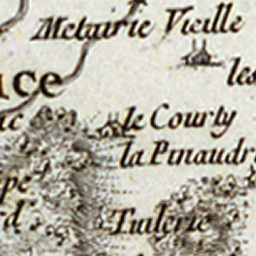 Metairie Vieille
les
ce
le Courty
la Pinaudr
Tuilerie